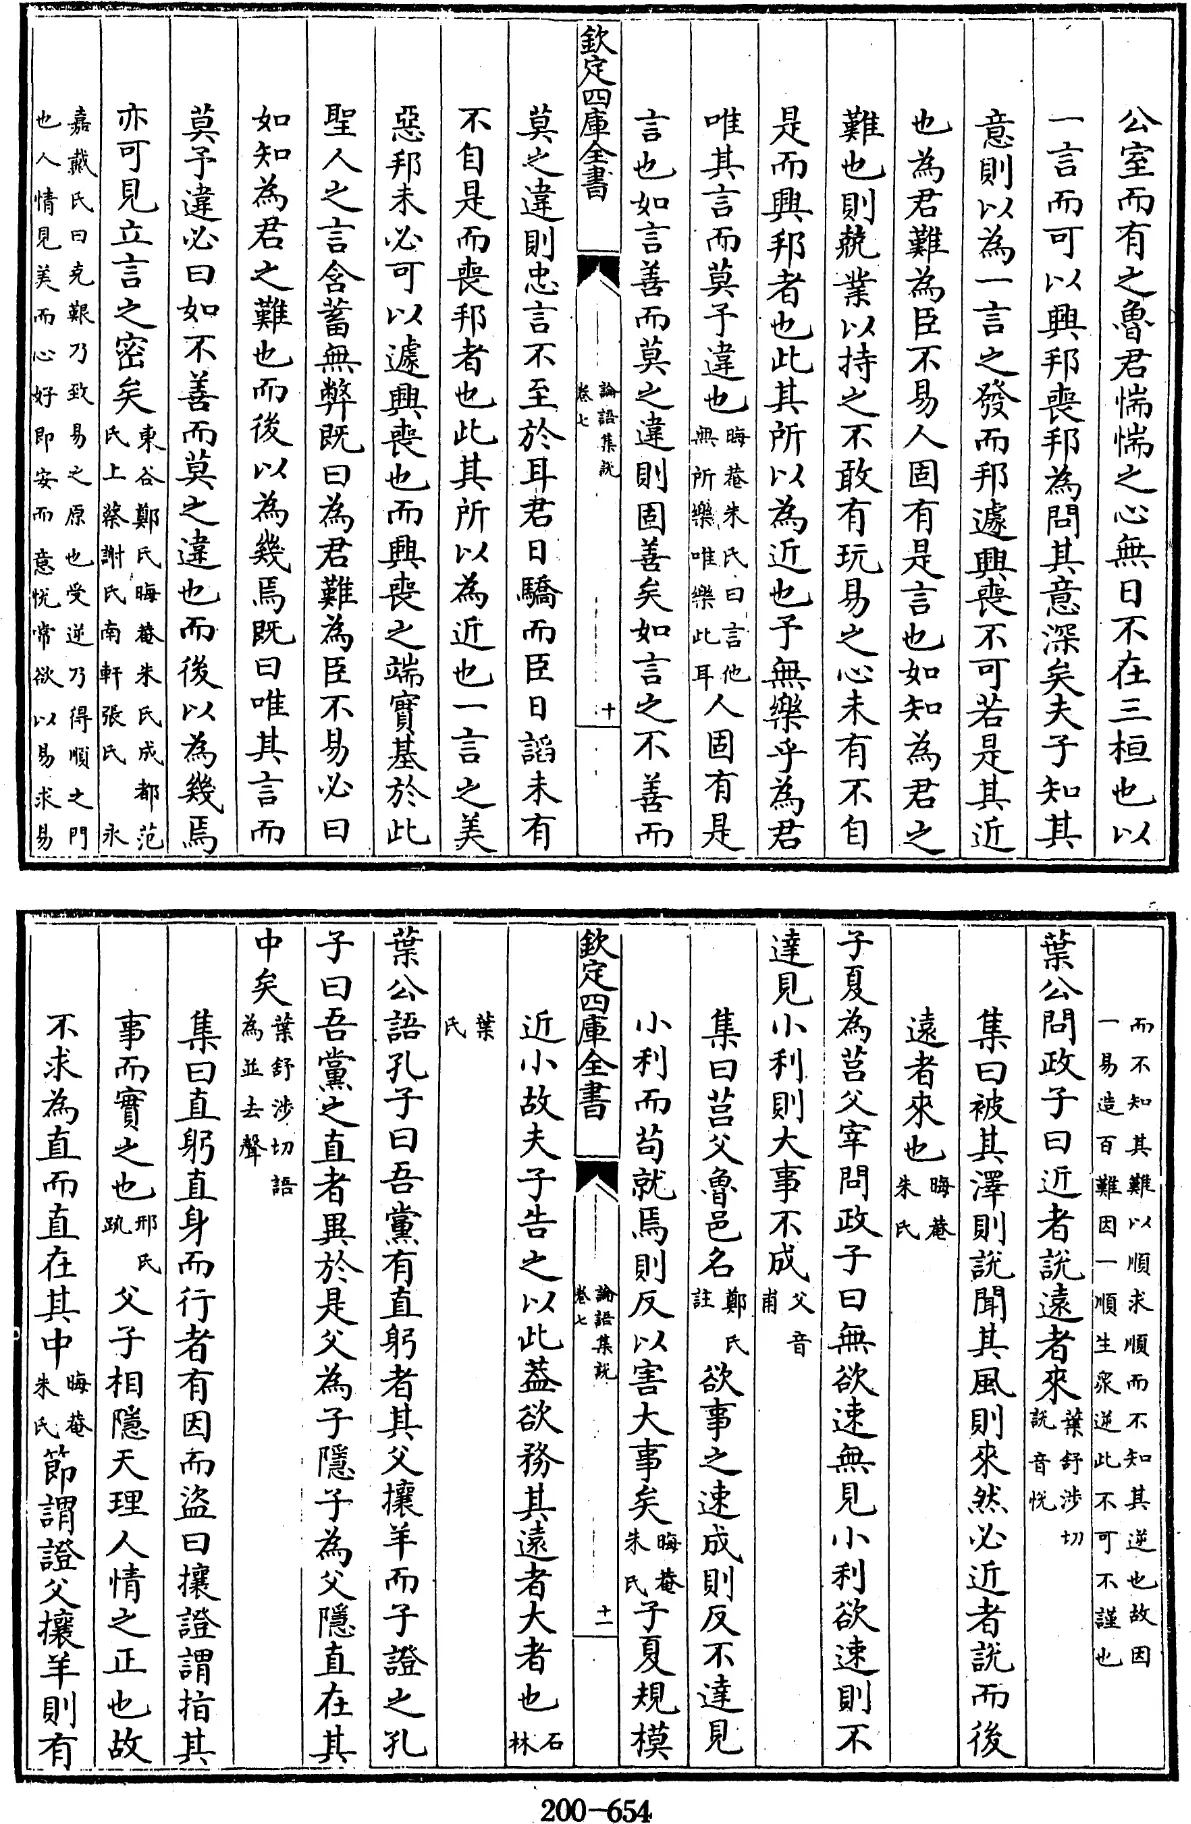 公室而有之魯君惴惴之心無日不在三桓也以
一言而可以興邦喪邦為問其意深矣夫子知其
意則以為一言之發而邦遽興喪不可若是其近
也為君難為臣不易人固有是言也如知為君之
難也則兢業以持之不敢有玩易之心未有不自
是而興邦者也此其所以為近也予無樂乎為君
唯其言而莫予違也晦菴朱氏曰言他無所樂唯樂此耳人固有是
言也如言善而莫之違則固善矣如言之不善而
欽定四庫全書
論語集說
卷七
十
莫之違則忠言不至於耳君日驕而臣日諂未有
不自是而喪邦者也此其所以為近也一言之美
惡邦未必可以遽興喪也而興喪之端實基於此
聖人之言含蓄無弊既曰為君難為臣不易必曰
如知為君之難也而後以為幾焉既曰唯其言而
莫予違必曰如不善而莫之違也而後以為幾焉
亦可見立言之密矣東谷鄭氏晦菴朱氏成都范氏上蔡謝氏南軒張氏 永
嘉戴氏曰克艱乃致易之原也受逆乃得順之門
也人情見美而心好即安而意悅常欲以易求易
而不知其難以順求順而不知其逆也故因
一易造百難因一順生衆逆此不可不謹也
葉公問政子曰近者說遠者來葉舒涉切說音悅
集曰被其澤則說聞其風則來然必近者說而後
遠者來也晦菴朱氏
子夏為莒父宰問政子曰無欲速無見小利欲速則不
達見小利則大事不成父音甫
集曰莒父魯邑名鄭氏註欲事之速成則反不達見
小利而苟就焉則反以害大事矣晦菴朱氏子夏規模
欽定四庫全書
論語集說
卷七
十一
近小故夫子告之以此蓋欲務其遠者大者也石林
葉氏
葉公語孔子曰吾黨有直躬者其父攘羊而子證之孔
子曰吾黨之直者異於是父為子隱子為父隱直在其
中矣葉舒涉切語為並去聲
集曰直躬直身而行者有因而盜曰攘證謂指其
事而實之也邢氏疏父子相隱天理人情之正也故
不求為直而直在其中晦菴朱氏節謂證父攘羊則有
200-654